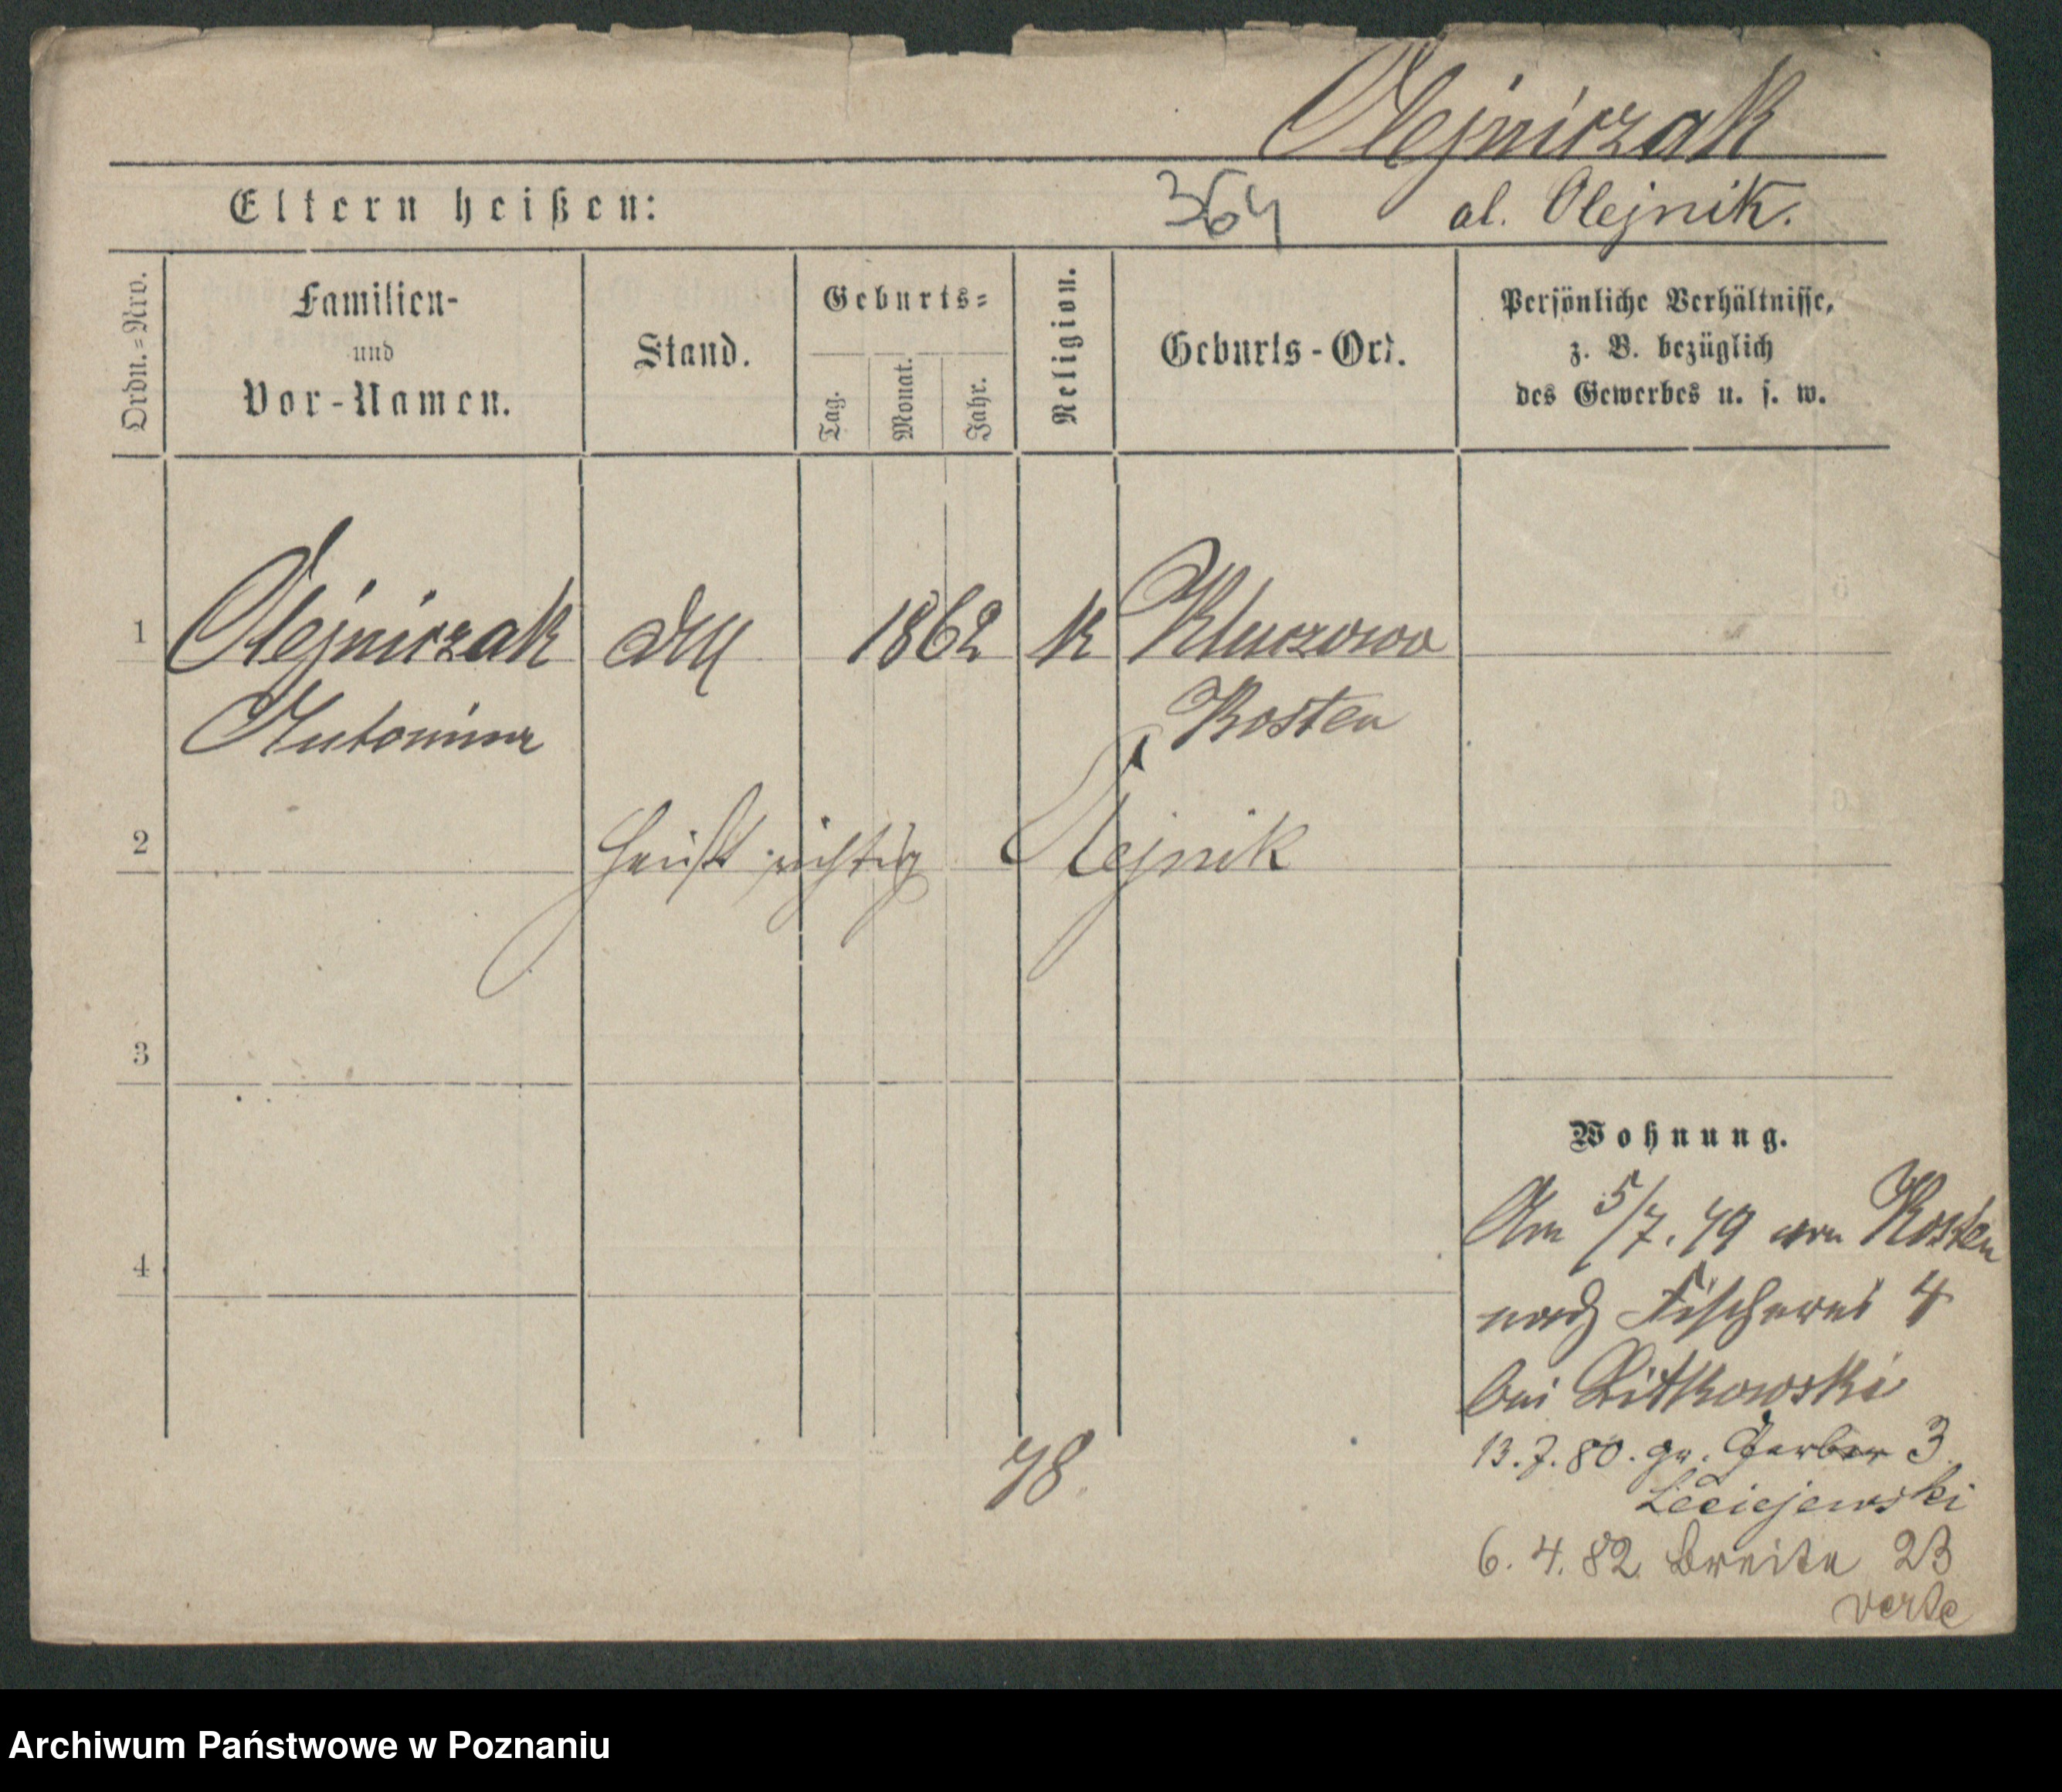 Olejniczak
Eltern heißen:
364
al. Olejnik.
Ordn.=Nro.
Familien-
und
Vor-Namen.
Stand.
Geburts=
Tag.
Monat.
Jahr.
Religion.
Geburts-Ort.
Persönliche Verhältnisse,
z. B. bezüglich
des Gewerbes u. s. w.
1
Olejniczak
1862
K
Kluczowo
Antonina
Kosten
2
heißt richtig Olejnik
3
Wohnung.
4
Am 5/7. 79 von Kosten
nach Fischerei 4
bei Sittkowski
13.7.80. gr. Gerber 3
Leciejewski
6. 4. 82 Breite 23
verte
78.
Archiwum Państwowe w Poznaniu